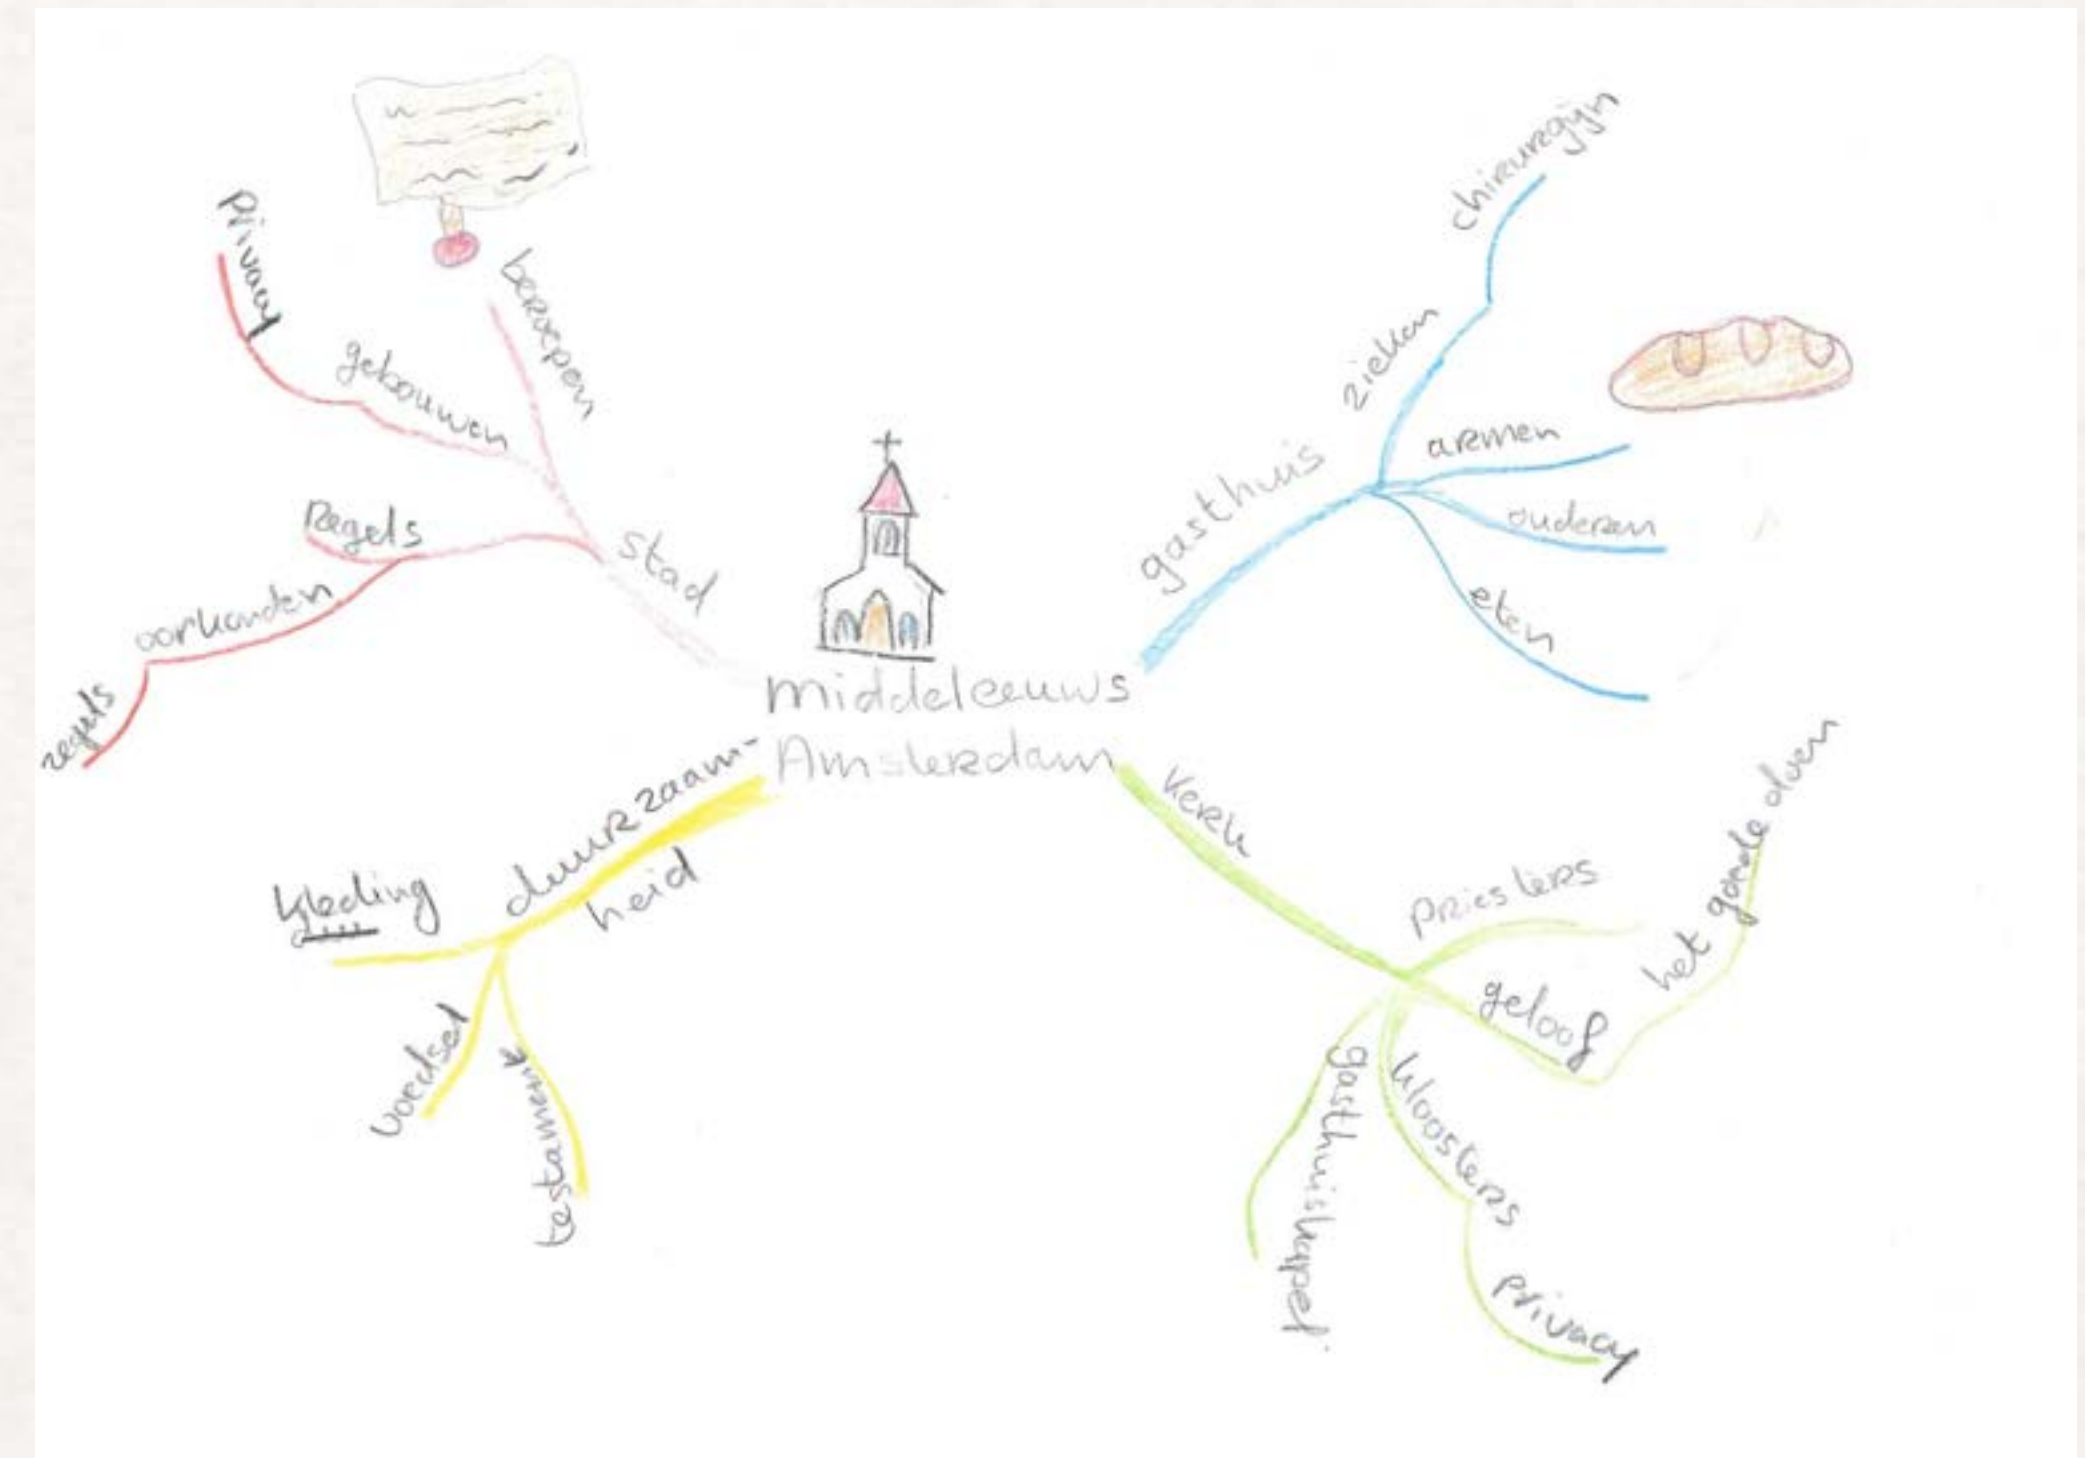 Middeleeuws
Amsterdam
stad
beroepen
gebouwen
Privacy
Regels
oorkonden
zegels
gasthuis
zieken
chirurgijn
armen
ouderen
eten
Kerk
priesters
geloof
het goede doen
kloosters
privacy
gasthuiskapel
duurzaam-
heid
kleding
voedsel
testament